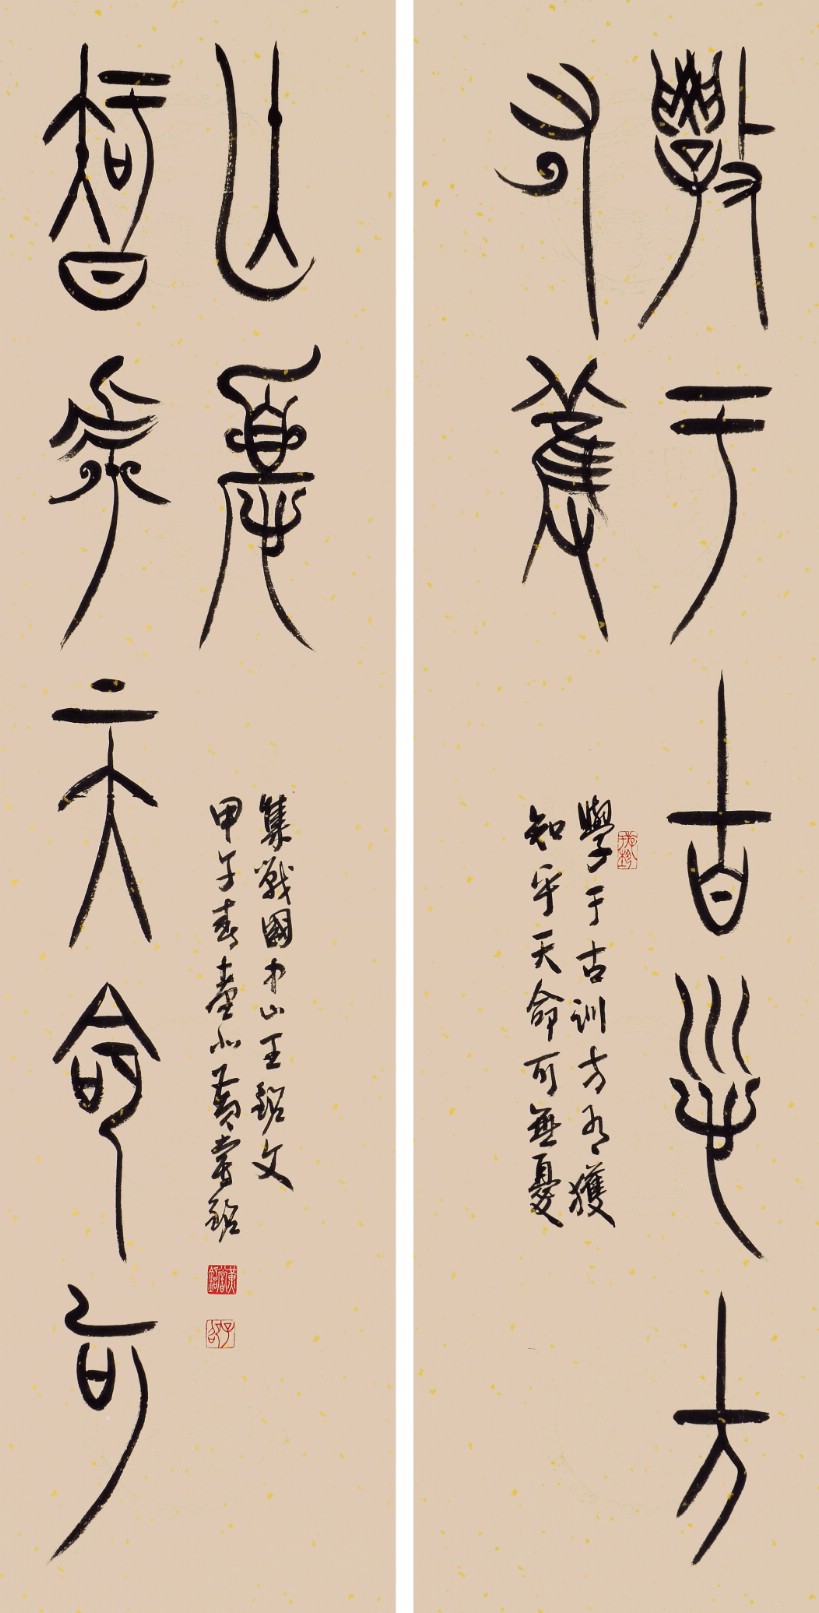 學于古訓方
有獲
學于古訓方有獲
知乎天命可無憂
智乎天命可
亡憂
集戰國中山王銘文
甲午春臺北黃嘗銘
黃嘗銘